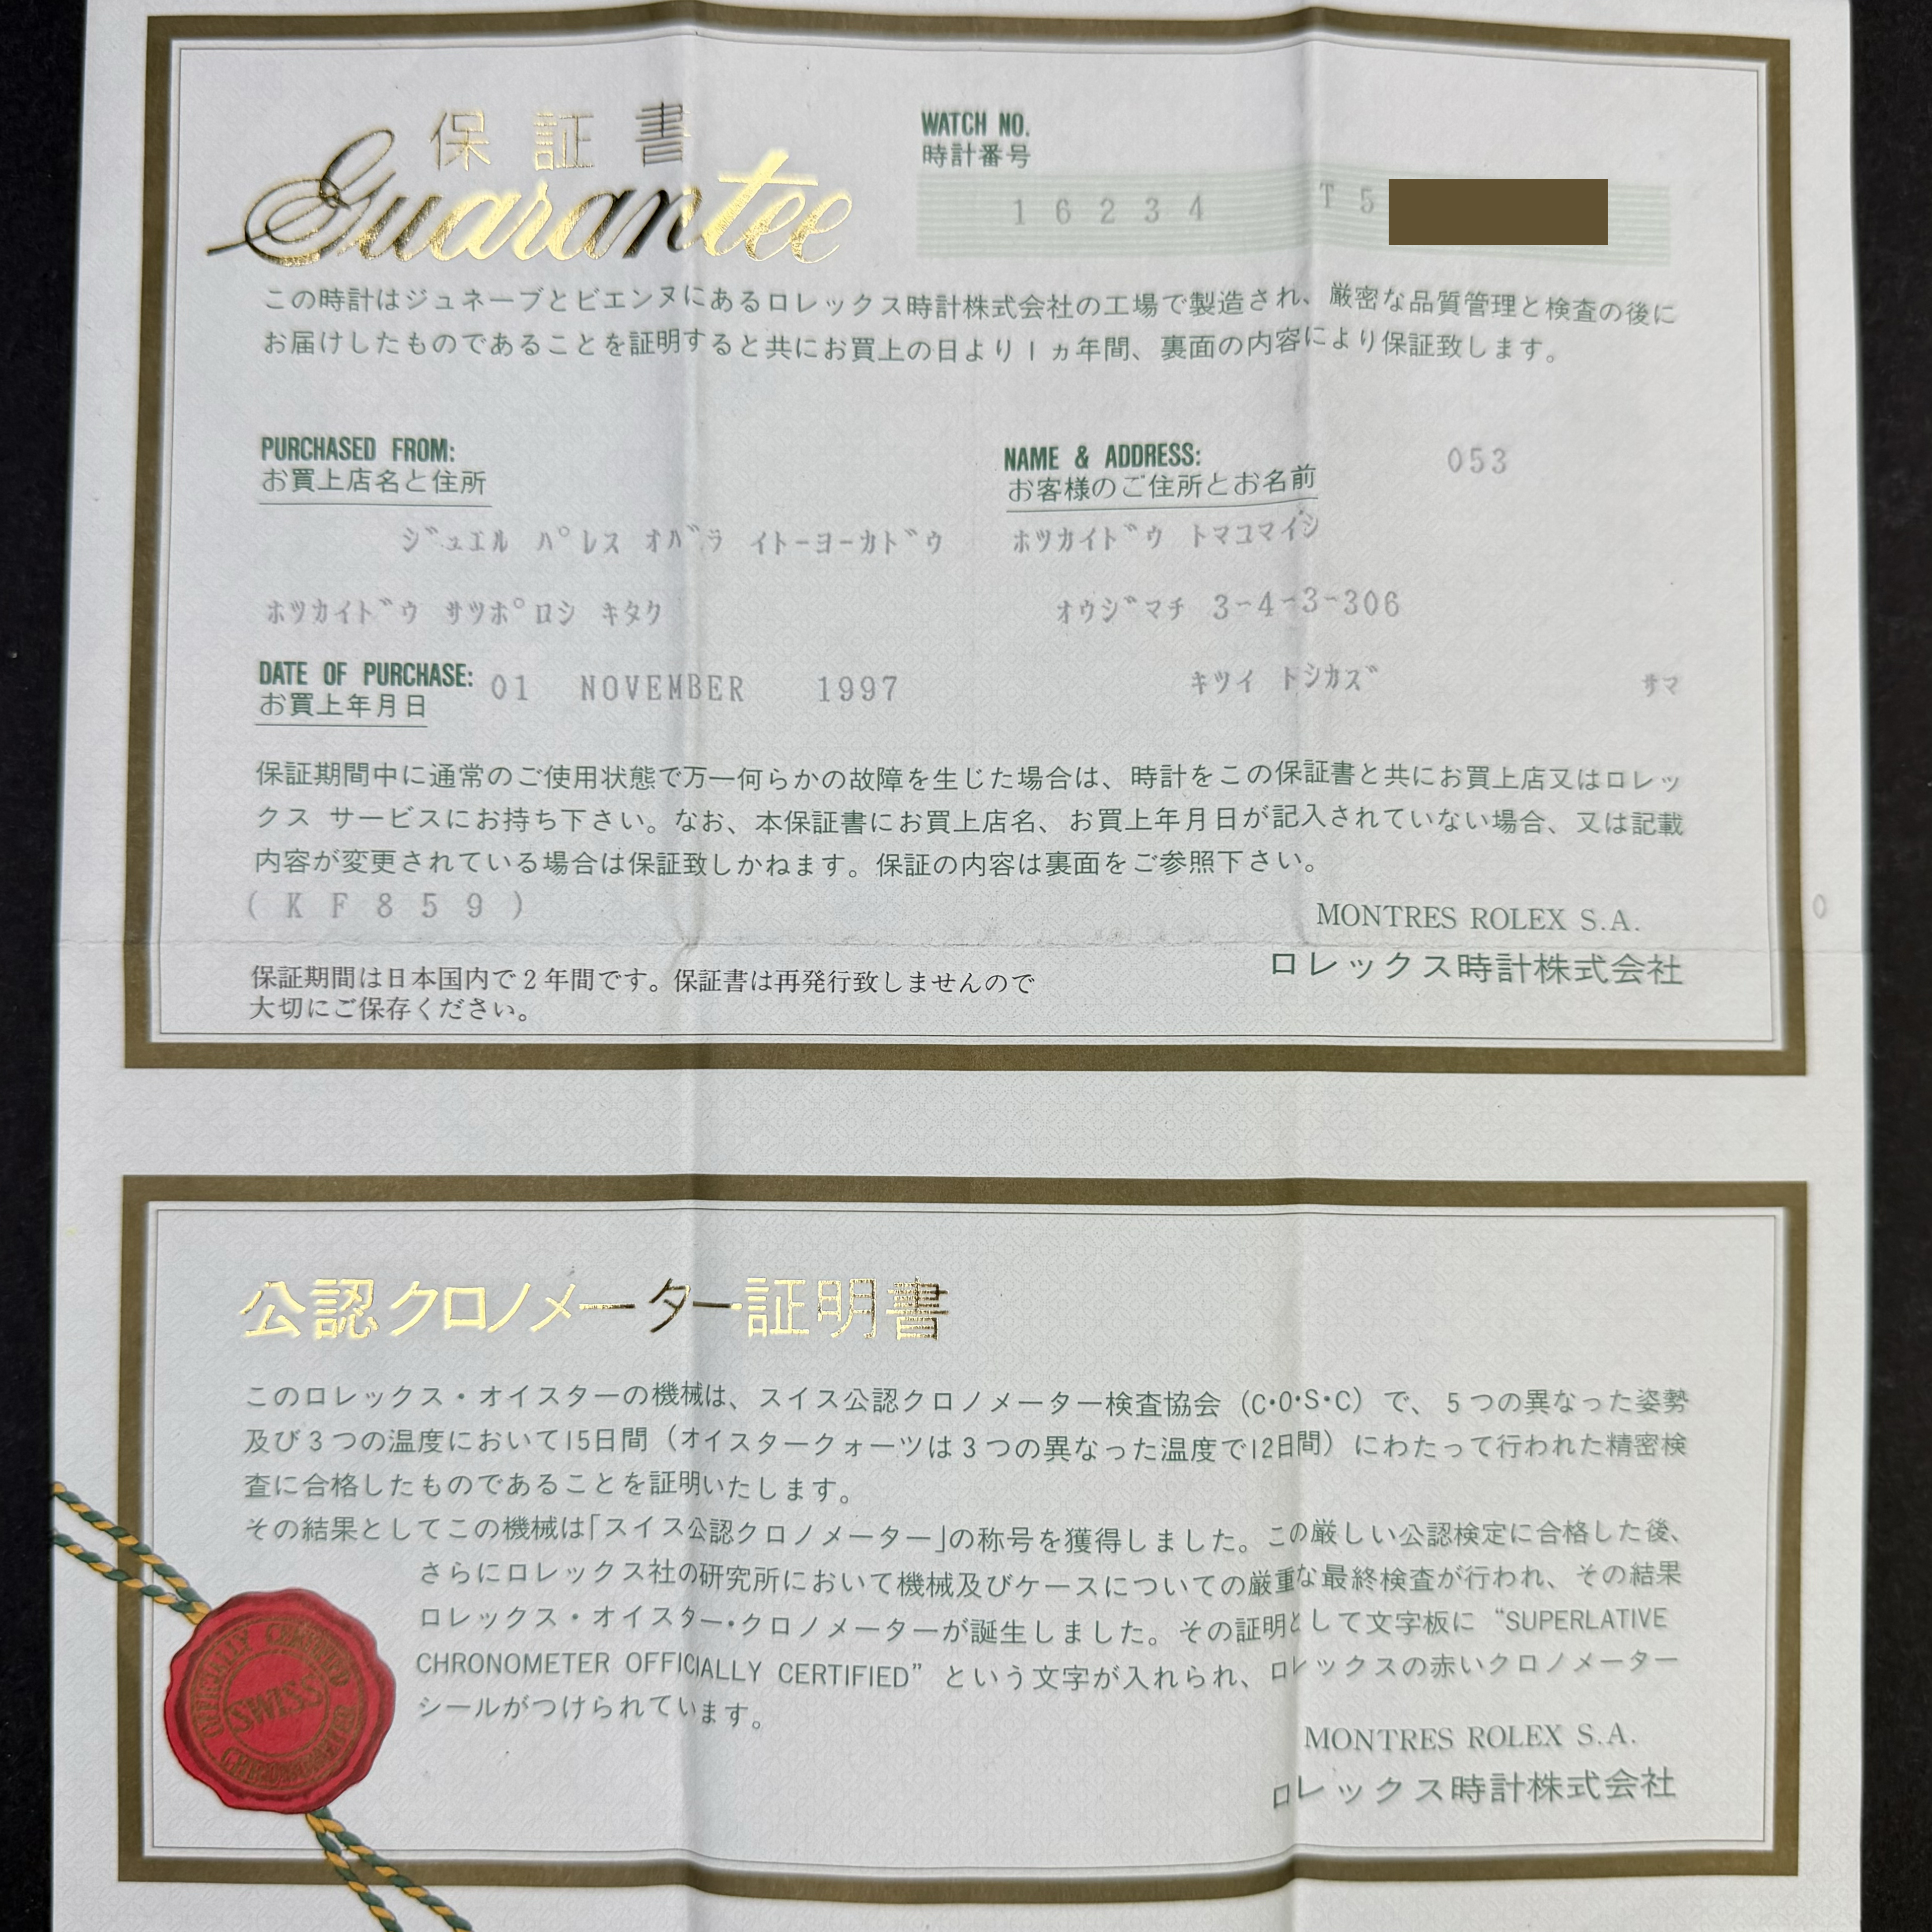 保証書
Guarantee
WATCH NO.
時計番号
16234 T5
この時計はジュネーブとビエンヌにあるロレックス時計株式会社の工場で製造され、厳密な品質管理と検査の後に
お届けしたものであることを証明すると共にお買上の日より1ヵ年間、裏面の内容により保証致します。
PURCHASED FROM:
お買上店名と住所
ジュエル パレス オバラ イトーヨーカドウ
ホツカイドウ サツポロシ キタク
NAME & ADDRESS: 053
お客様のご住所とお名前
ホツカイドウ トマコマイシ
オウジマチ 3-4-3-306
キツイ トシカズ サマ
DATE OF PURCHASE: 01 NOVEMBER 1997
お買上年月日
保証期間中に通常のご使用状態で万一何らかの故障を生じた場合は、時計をこの保証書と共にお買上店又はロレッ
クス サービスにお持ち下さい。なお、本保証書にお買上店名、お買上年月日が記入されていない場合、又は記載
内容が変更されている場合は保証致しかねます。保証の内容は裏面をご参照下さい。
(KF859)
0
MONTRES ROLEX S.A.
ロレックス時計株式会社
保証期間は日本国内で2年間です。保証書は再発行致しませんので
大切にご保存ください。
公認クロノメーター証明書
このロレックス・オイスターの機械は、スイス公認クロノメーター検査協会（C・O・S・C）で、5つの異なった姿勢
及び3つの温度において15日間（オイスタークォーツは3つの異なった温度で12日間）にわたって行われた精密検
査に合格したものであることを証明いたします。
その結果としてこの機械は「スイス公認クロノメーター」の称号を獲得しました。この厳しい公認検定に合格した後、
さらにロレックス社の研究所において機械及びケースについての厳重な最終検査が行われ、その結果
ロレックス・オイスター・クロノメーターが誕生しました。その証明として文字板に “SUPERLATIVE
CHRONOMETER OFFICIALLY CERTIFIED” という文字が入れられ、ロレックスの赤いクロノメーター
シールがつけられています。
OFFICIALLY CERTIFIED
SWISS
CHRONOMETER
MONTRES ROLEX S.A.
ロレックス時計株式会社